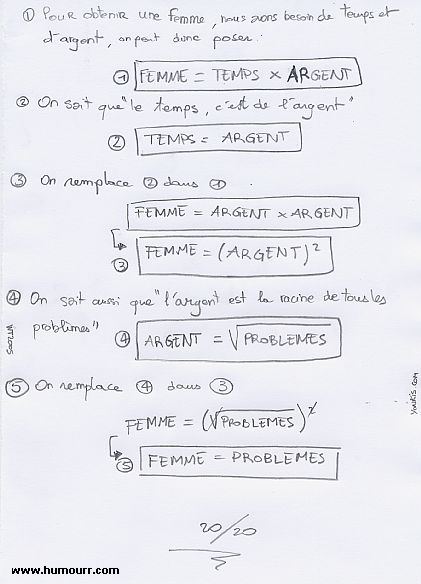 ① Pour obtenir une femme, nous avons besoin de temps et
d'argent, on peut donc poser :
① FEMME = TEMPS × ARGENT
② On sait que "le temps, c'est de l'argent"
② TEMPS = ARGENT
③ On remplace ② dans ①.
FEMME = ARGENT × ARGENT
③ FEMME = (ARGENT)²
④ On sait aussi que "l'argent est la racine de tous les
problèmes"
④ ARGENT = √PROBLEMES
⑤ On remplace ④ dans ③
FEMME = (√PROBLEMES)²
⑤ FEMME = PROBLEMES
20/20
www.humourr.com